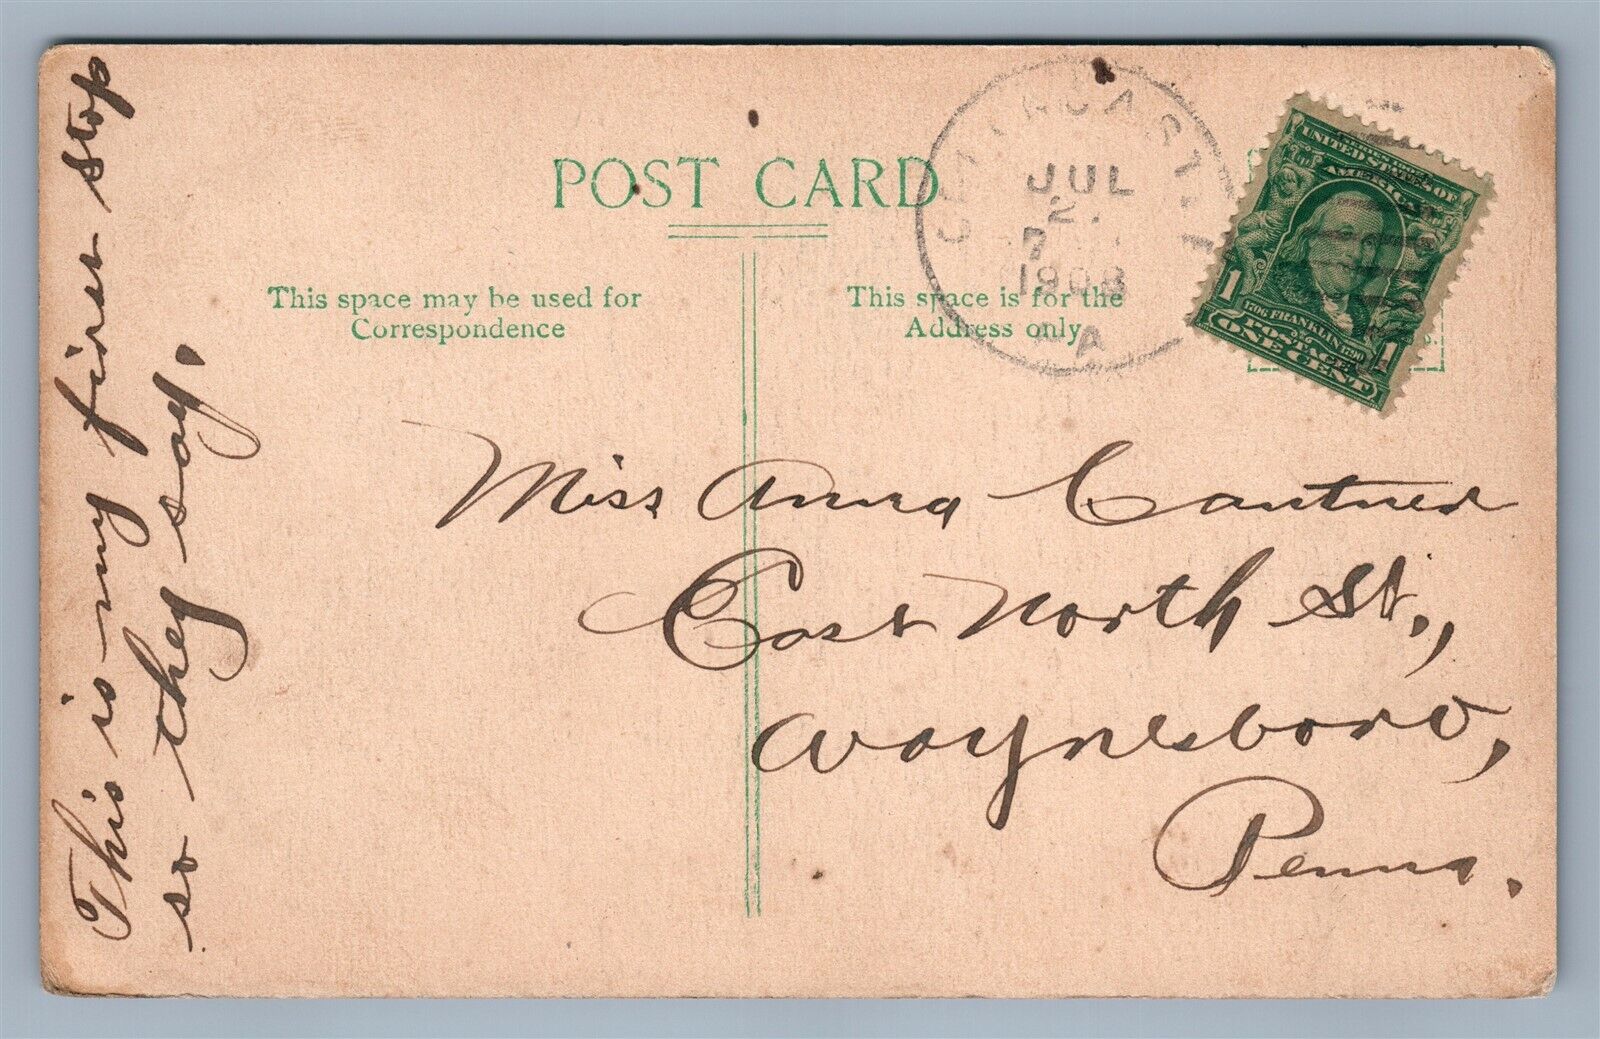 This is my first stop
so they say.
POST CARD
This space may be used for
Correspondence
This space is for the
Address only
JUL
2
7
1908
A
UNITED STATES OF
AMERICA
1706 FRANKLIN 1790
POSTAGE
ONE CENT
1 1
Miss Anna Cantner
East North St.,
Waynesboro,
Penna.